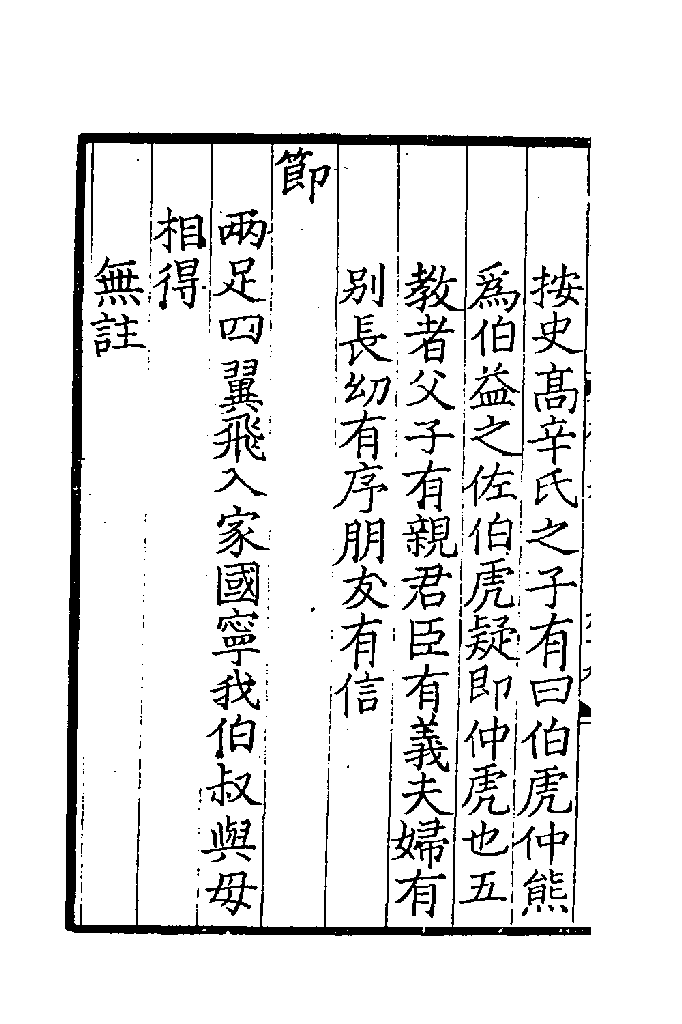 按史高辛氏之子有曰伯虎仲熊
爲伯益之佐伯虎疑即仲虎也五
教者父子有親君臣有義夫婦有
别長幼有序朋友有信
節
兩足四翼飛入家國寧我伯叔與母
相得
無註